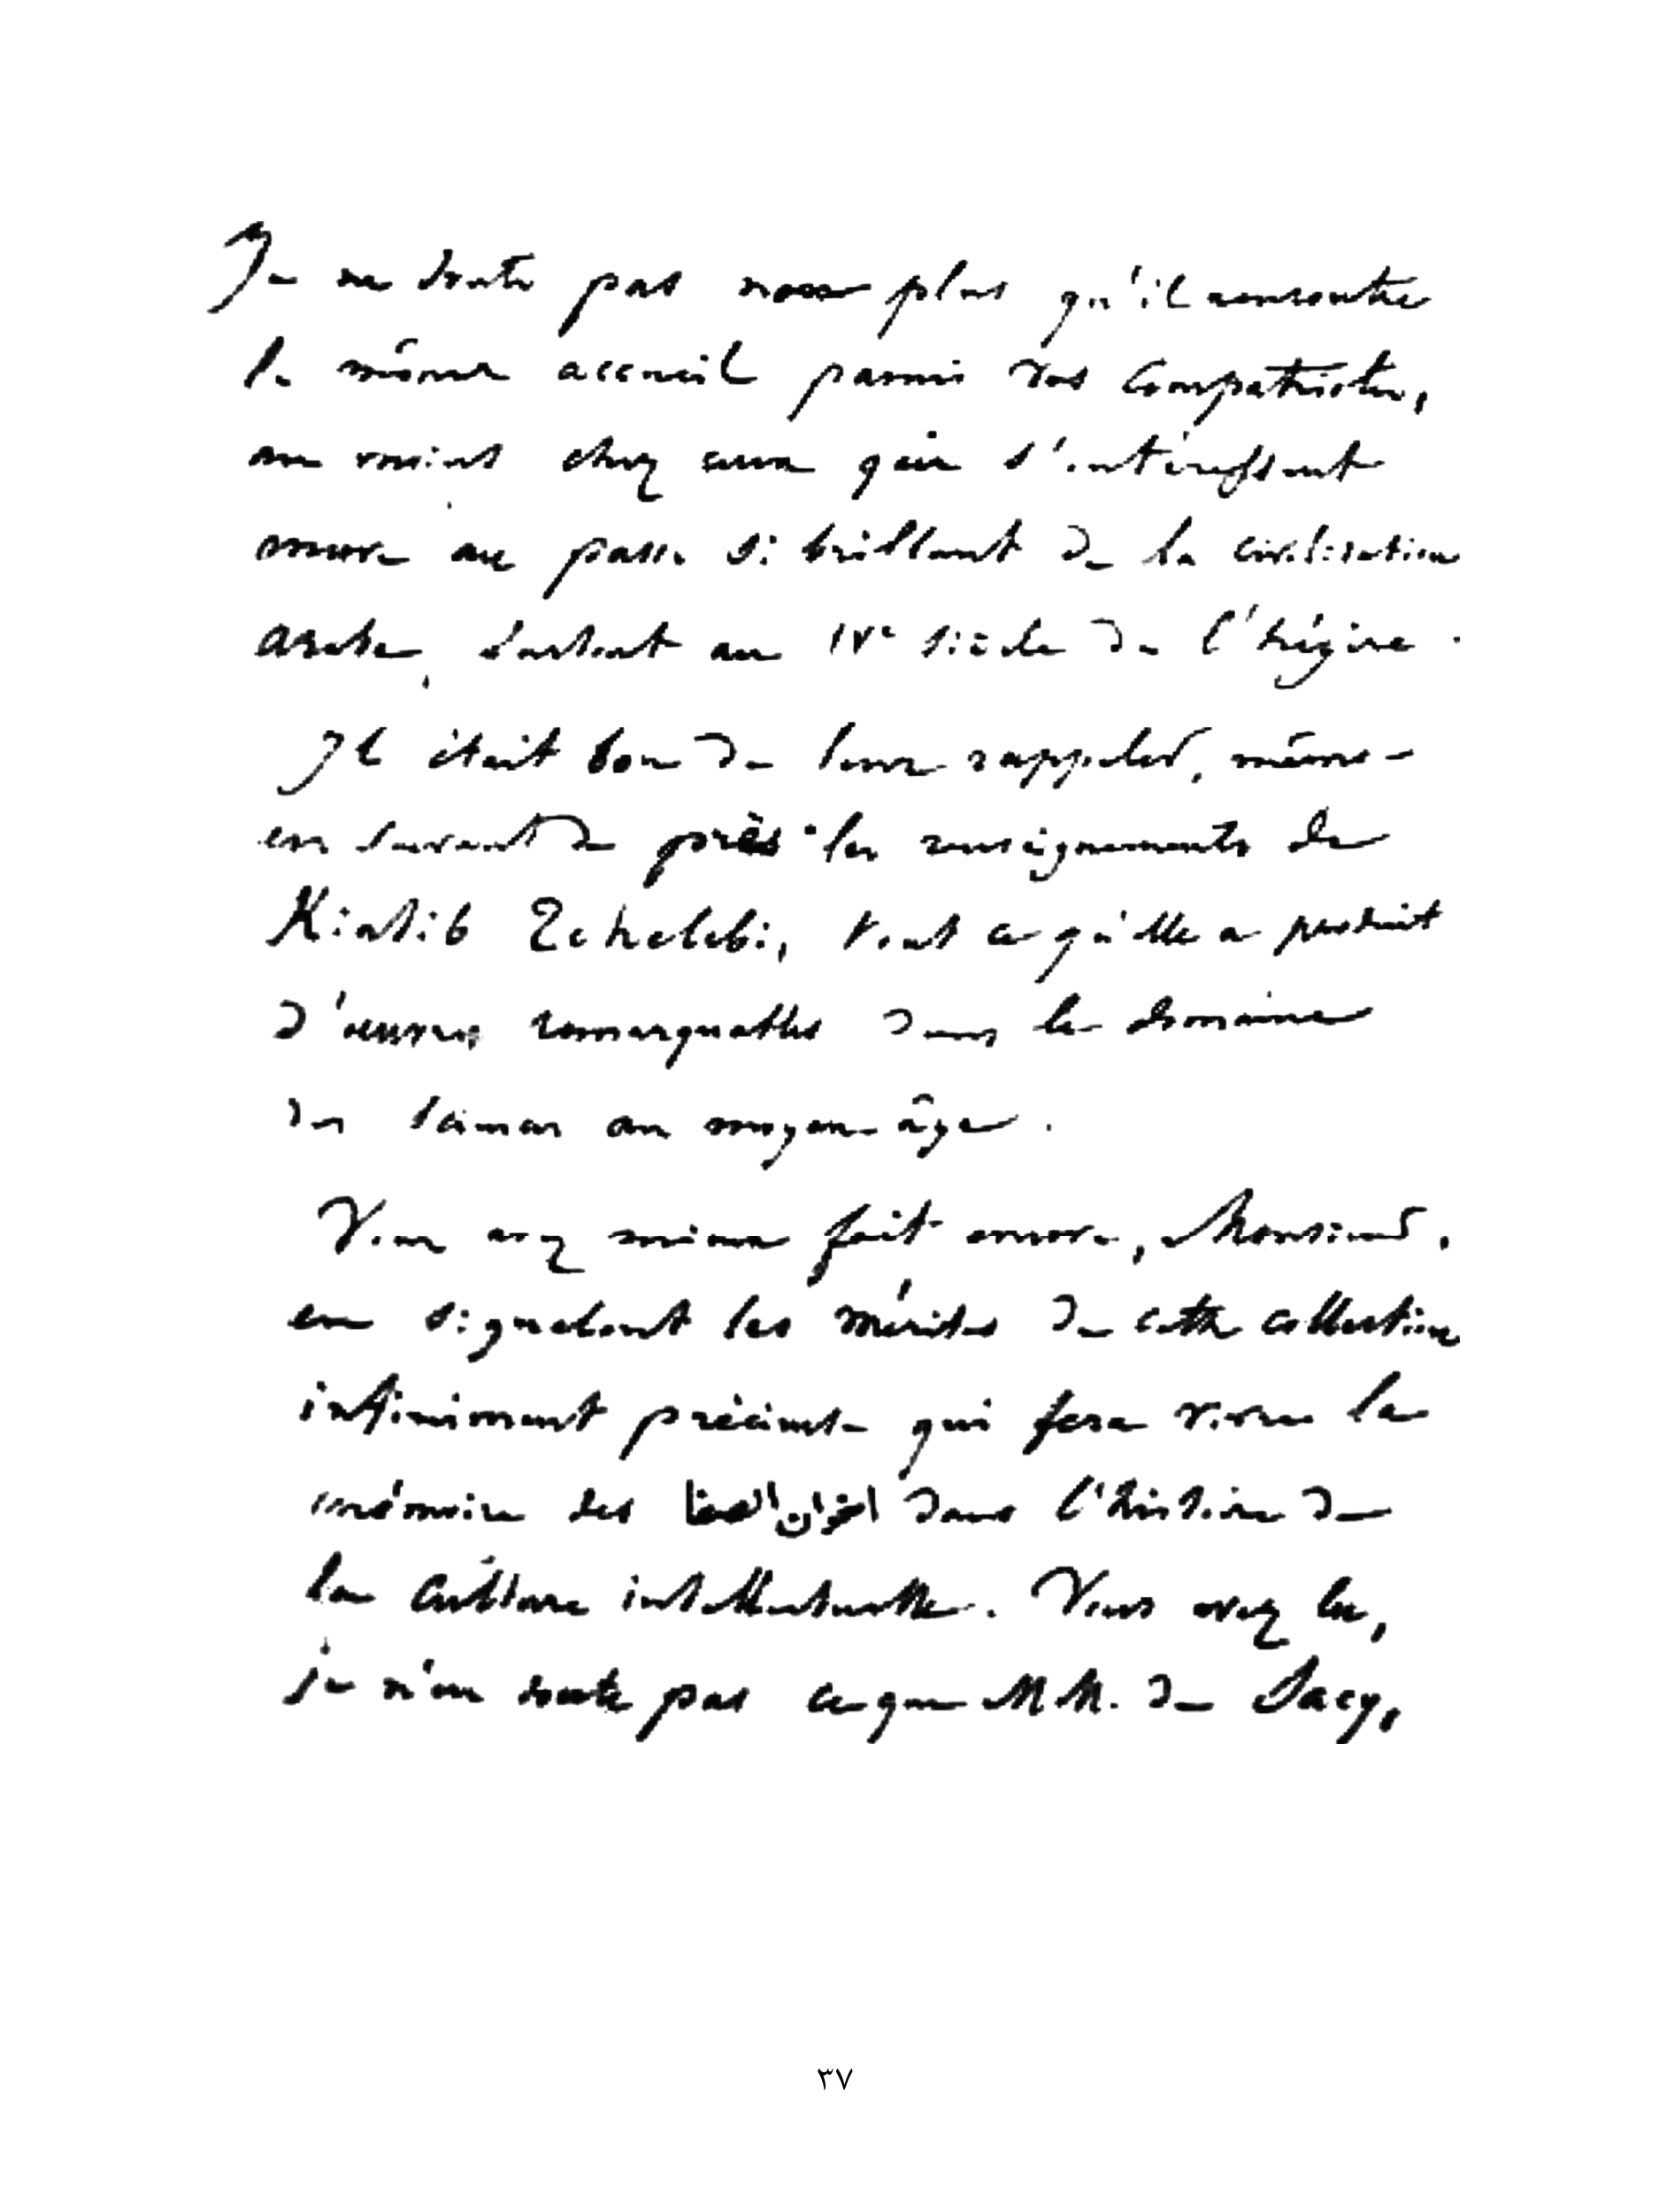 Je ne doute pas non plus qu'il rencontre
le même accueil parmi vos compatriotes,
au moins chez ceux qui s'intéressent
encore au passé si brillant de la civilisation
arabe, surtout au IVe siècle de l'hégire.
Il était bon de leur rappeler, même
en suivant de près les renseignements de
Kiatib Tchelebi, tout ce qu'elle a produit
d'œuvres remarquables dans le domaine
des sciences au moyen âge.
Vous avez mieux fait encore, Monsieur,
en signalant les mérites de cette collection
infiniment précieuse qui fera vivre la
mémoire des اخوان الصفا dans l'histoire de
la culture intellectuelle. Vous avez lu,
je n'en doute pas ce que MM. de Sacy,
٣٧